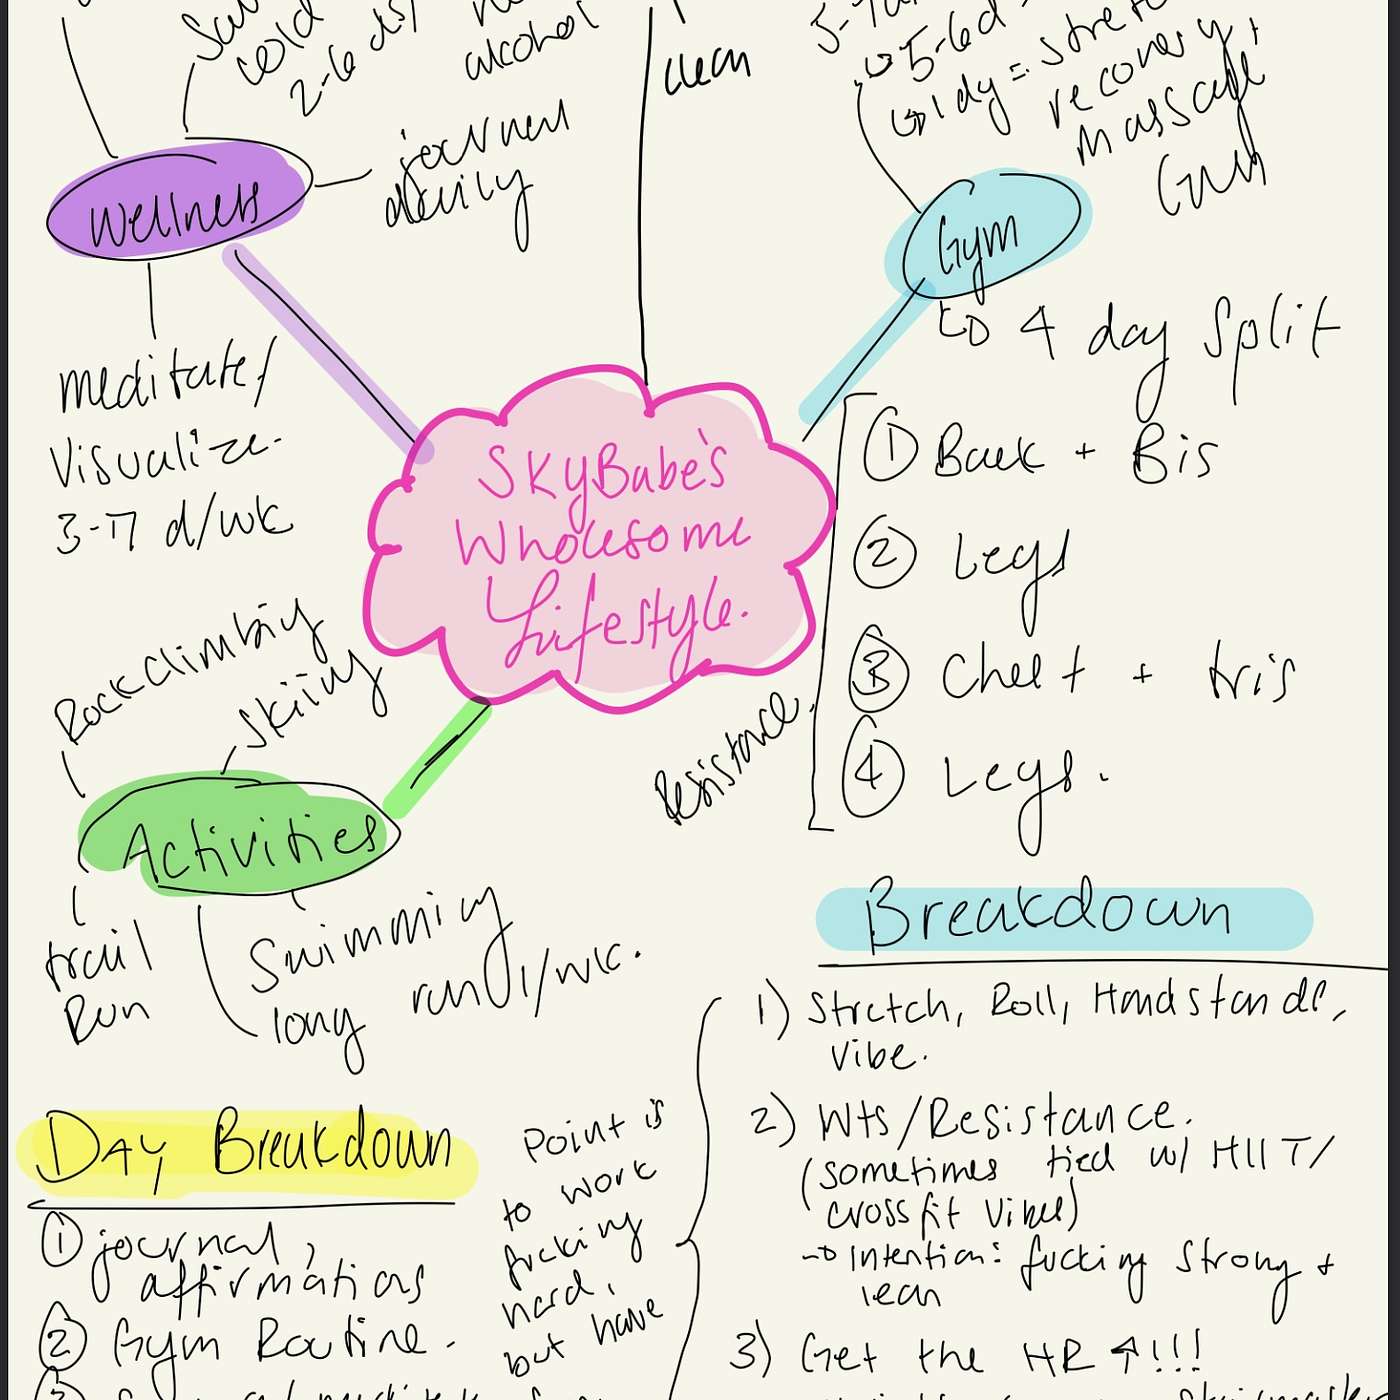 cold
2-6 d
alcohol
clean
5-6d
1 dy = stretch
recovery,
massage
Gun
Wellness
journal
daily
Gym
meditate/
Visualize.
3-7 d/wk
4 day Split
① Back + Bis
② Legs
③ Chest + tris
④ Legs.
Resistance.
SkyBabe's
Wholesome
Lifestyle.
Rock Climbing
Skiing
Activities
trail
Run
Swimming
long run 1/wk.
Breakdown
1) Stretch, Roll, Handstands,
Vibe.
2) Wts/Resistance.
(sometimes tied w/ HIIT/
crossfit vibes)
→ Intention: fucking strong +
lean
3) Get the HR ↑!!!
Point is
to work
fucking
hard,
but have
Day Breakdown
① journal,
affirmations
② Gym Routine.